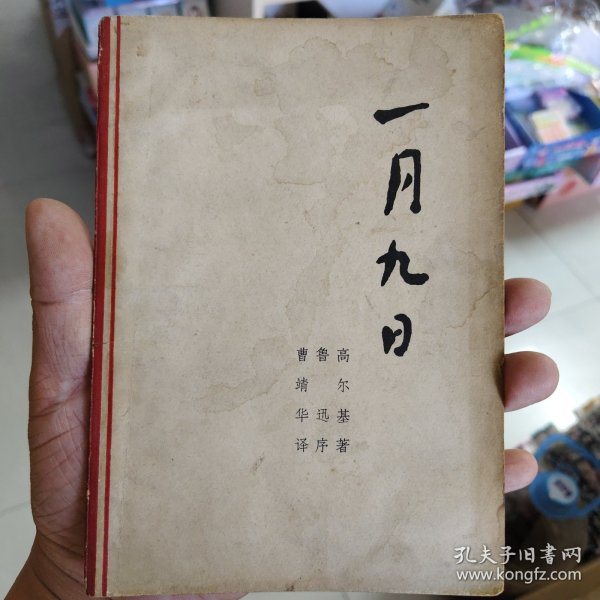 一月九日
高尔基著
鲁迅序
曹靖华译
孔夫子旧書网
www.kongfz.com